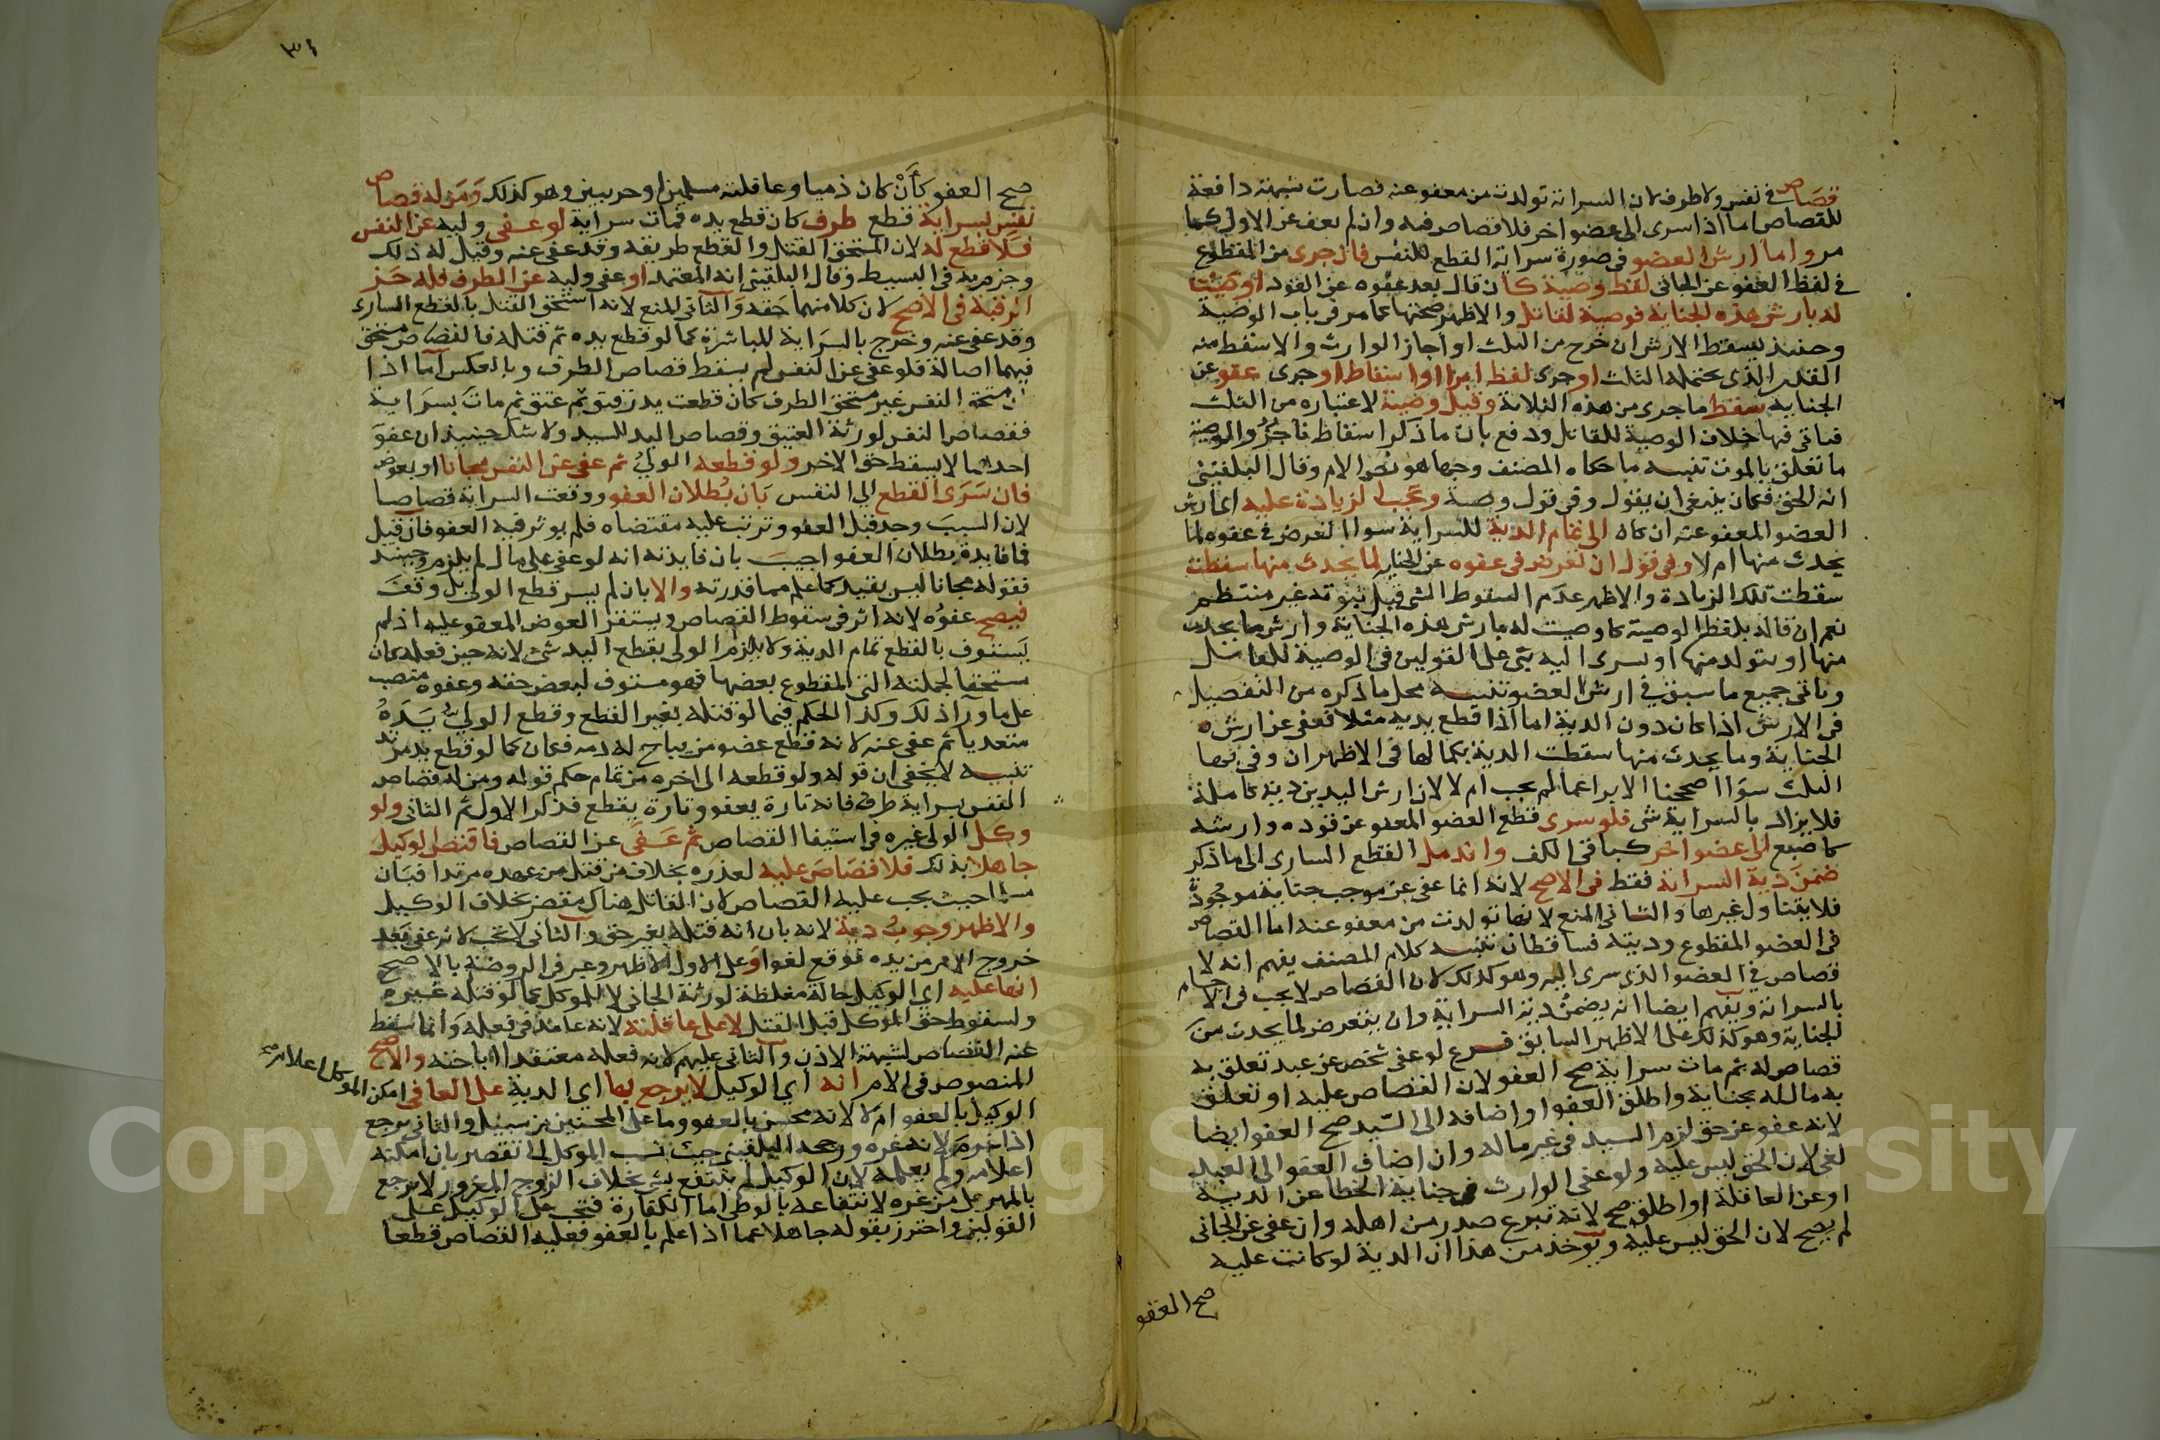 قصاص في نفس ولا طرف لان السراية تولدت من معفو عنه فصارت شبهة دافعة
للقصاص اما اذا سرى الى عضو اخر فلا قصاص فيه وان لم يعف عن الاول كما
مر واما ارش العضو في صورة سراية القطع للنفس فان جرى من المقطوع
في لفظ العفو عن الجاني لفظ وصية كان قال بعد عفوه عن القود اوصيت
له بارش هذه الجناية فوصية لقاتل والاظهر صحتها كما مر في باب الوصية
وحينئذ يسقط الارش ان خرج من الثلث او اجاز الوارث والا سقط منه
القدر الذي يحتمله الثلث او جرى لفظ ابراء او اسقاط او جرى عفو عن
الجناية سقط ما جرى من هذه الثلاثة وقيل وصية لاعتباره من الثلث
فياتي فيها خلاف الوصية للقاتل ودفع بان ما ذكر اسقاط ناجز والوصية
ما تعلق بالموت تنبيه ما حكاه المصنف وجها هو نص الام وقال البلقيني
انه الحق فكان ينبغي ان يقول وفي قول وصية وتجب الزيادة عليه اي ارش
العضو المعفو عنه ان كان الى تمام الدية للسراية سوا تعرض في عفوه لما
يحدث منها ام لا وفي قول ان تعرض في عفوه عن الجناية لما يحدث منها سقطت
سقطت تلك الزيادة والاظهر عدم السقوط الشي قبل ثبوته غير منتظم
نعم ان قاله بلفظ الوصية كاوصيت له بارش هذه الجناية وارش ما يحدث
منها او يتولد منها او يسرى اليه بني على القولين في الوصية للقاتل
وياتي جميع ما سبق في ارش العضو تنبيه محل ما ذكره من التفصيل
في الارش اذا كان دون الدية اما اذا قطع يديه مثلا فعفى عن ارش
الجناية وما يحدث منها سقطت الدية بكمالها في الاظهر ان وفى بها
الثلث سوا اصححنا الابرا عما لم يجب ام لا لان ارش اليدين دية كاملة
فلا يزاد بالسراية شي فلو سرى قطع العضو المعفو عن قوده وارشه
كاصبع الى عضو اخر كباقي الكف واندمل القطع الساري الى ما ذكر
ضمن دية السراية فقط في الاصح لانه انما عفى عن موجب جناية موجودة
فلا يتناول غيرها والثاني المنع لانها تولدت من معفو عنه اما القصاص
في العضو المقطوع وديته فساقطان تنبيه كلام المصنف يفهم انه لا
قصاص في العضو الذي سرى اليه وهو كذلك لان القصاص لا يجب في الاجسام
بالسراية ويفهم ايضا انه يضمن دية السراية وان يتعرض لما يحدث من
الجناية وهو كذلك على الاظهر السابق فرع لو عفى شخص عن عبد تعلق به
قصاص له ثم مات سراية صح العفو لان القصاص عليه او تعلق
به مال له بجناية واطلق العفو او اضافه الى السيد صح العفو ايضا
لانه عفو عن حق لزم السيد في غير ماله وان اضاف العفو الى العبد
لغى لان الحق ليس عليه ولو عفى الوارث في جناية الخطا عن الدية
او عن العاقلة او اطلق صح لانه تبرع صدر من اهله وان عفى عن الجاني
لم يصح لان الحق ليس عليه ويوخذ من هذا ان الدية لو كانت عليه
صح العفو
٣٤
صح العفو كأن كان ذميا وعاقلته مسلمين او حربيين وهو كذلك ومن له قصاص
نفس بسراية قطع طرف كان قطع يده فمات سراية لو عفى وليه عن النفس
فلا قطع له لان المستحق القتل والقطع طريقه وقد عفى عنه وقيل له ذلك
وجزم به في البسيط وقال البلقيني انه المعتمد او عفى وليه عن الطرف فله حز
الرقبة في الاصح لان كلا منهما حقه والثاني المنع لانه استحق القتل بالقطع الساري
وقد عفى عنه وخرج بالسراية المباشرة كما لو قطع يده ثم قتله فالقصاص مستحق
فيهما اصالة فلو عفى عن النفس لم يسقط قصاص الطرف وبالعكس اما اذا
مستحق النفس غير مستحق الطرف كان قطعت يد رقيق ثم عتق ثم مات بسراية
فقصاص النفس لورثة العتيق وقصاص اليد للسيد ولا شك حينئذ ان عفو
احدهما لا يسقط حق الاخر ولو قطعه الولي ثم عفى عن النفس مجانا او بعوض
فان سرى القطع الى النفس بان بطلان العفو ووقعت السراية قصاصا
لان السبب وجد قبل العفو وترتب عليه مقتضاه فلم يوثر فيه العفو فان قيل
فما فايدة بطلان العفو اجيب بان فايدته انه لو عفى على مال لم يلزم وحينئذ
فقوله مجانا ليس بقيد كما علم مما قدرته والا بان لم يسر قطع الولي بل وقف
فيصح عفوه لانه اثر في سقوط القصاص ويستقر العوض المعفو عليه اذ لم
يستوف بالقطع تمام الدية ولا يلزم الولي بقطع اليد شي لانه حين فعله كان
مستحقا لجملته التي المقطوع بعضها فهو مستوف لبعض حقه وعفوه منصب
على ما ورا ذلك وكذا الحكم فيما لو قتله بغير القطع وقطع الولي يده
متعديا ثم عفى عنه لانه قطع عضو من يباح له دمه فكان كما لو قطع يد مرتد
تنبيه لا يخفى ان قوله ولو قطعه الى اخره من تمام حكم قوله ومن له قصاص
النفس بسراية طرف فانه تارة يعفو وتارة يقطع فذكر الاول ثم الثاني ولو
وكل الولي غيره في استيفا القصاص ثم عفى عن القصاص فاقتص الوكيل
جاهلا بذلك فلا قصاص عليه لعذره بخلاف من قتل من عهده مرتدا فبان
مسلما حيث يجب عليه القصاص لان القاتل هناك مقصر بخلاف الوكيل
والاظهر وجوب دية لانه بان انه قتله بغير حق والثاني لا تجب لانه عفى بعد
خروج الامر من يده فوقع لغوا وعلى الاول الاظهر وعبر في الروضة بالاصح
انها عليه اي الوكيل حالة مغلظة لورثة الجاني لا للموكل كما لو قتله غيره
ولسقوط حق الموكل قبل القتل لا على عاقلته لانه عامد في فعله وانما سقط
عنه القصاص لشبهة الاذن والثاني عليهم لانه فعله معتقدا اباحته والاصح
المنصوص في الام انه اي الوكيل لا يرجع بها اي الدية على العافي امكن الموكل اعلام صح
الوكيل بالعفو ام لا لانه محسن بالعفو وما على المحسنين من سبيل والثاني يرجع
اذا خرم لانه غره ورجحه البلقيني حيث نسب الموكل الى تقصير بان امكنه
اعلامه ولم يعلمه لان الوكيل لم ينتفع بشي بخلاف الزوج المغرور لا يرجع
بالمهر على من غره لانتفاعه بالوطي اما الكفارة فتجب على الوكيل على
القولين واحترز بقوله جاهلا عما اذا علم بالعفو فعليه القصاص قطعا
Copyright © King Saud University